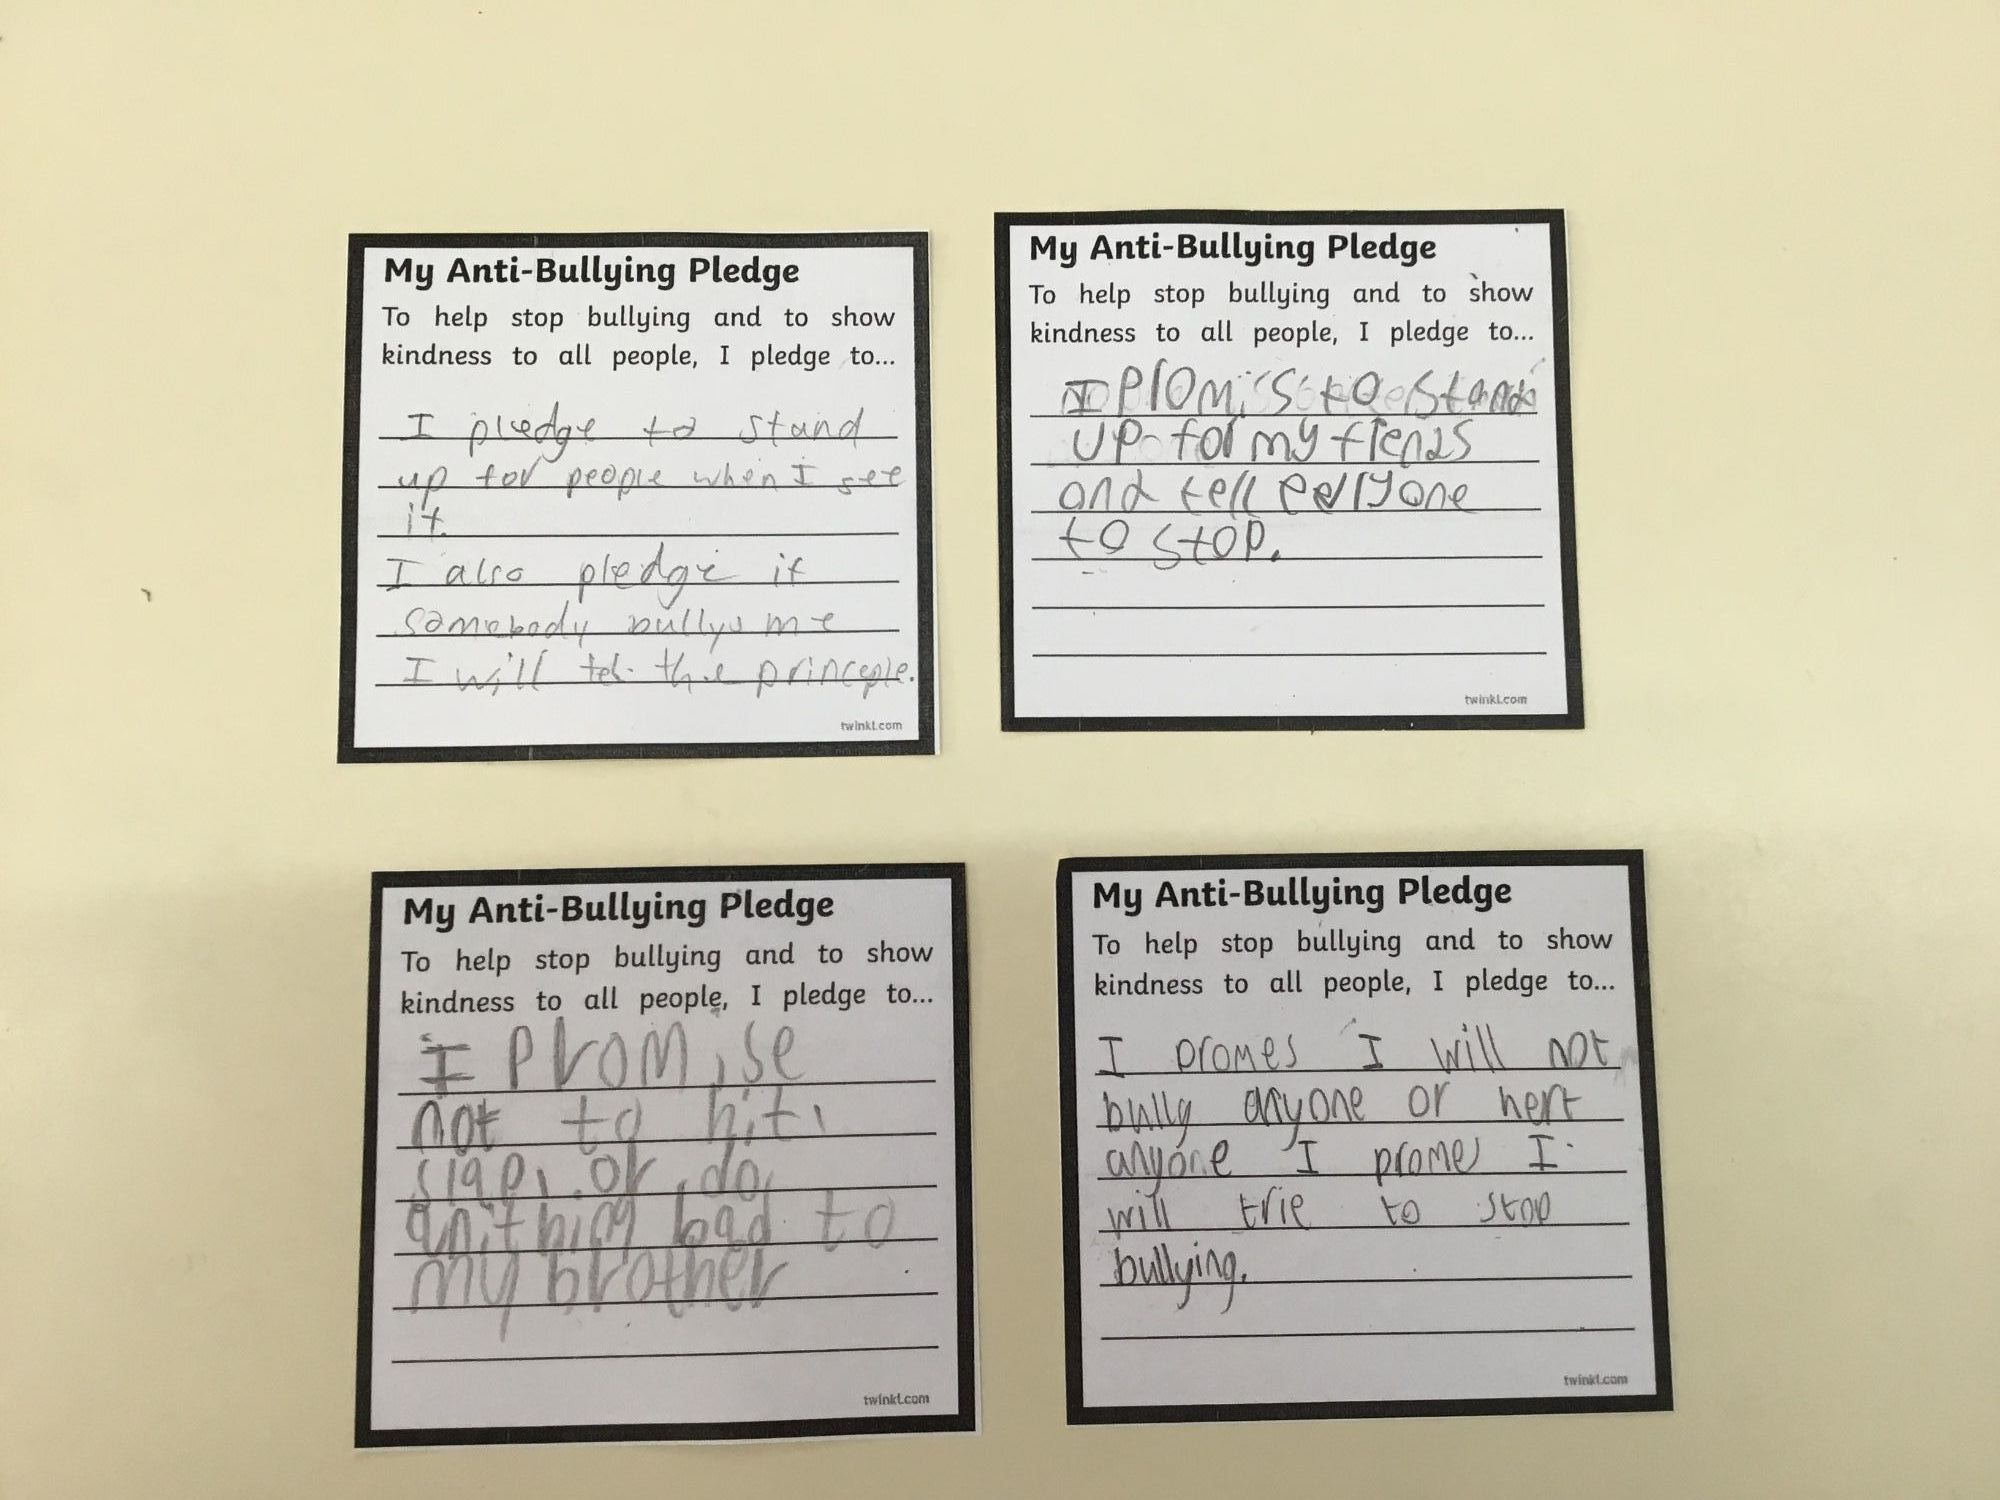 My Anti-Bullying Pledge
To help stop bullying and to show
kindness to all people, I pledge to...
I pledge to stand
up for people when I see
it.
I also pledge if
somebody bullys me
I will tell the princeple.
twinkl.com
My Anti-Bullying Pledge
To help stop bullying and to show
kindness to all people, I pledge to...
I Promis to stand
up for my frends
and tell evryone
to stop.
twinkl.com
My Anti-Bullying Pledge
To help stop bullying and to show
kindness to all people, I pledge to...
I promise
not to hit,
slap, or do
anithing bad to
my brother
twinkl.com
My Anti-Bullying Pledge
To help stop bullying and to show
kindness to all people, I pledge to...
I promes I will not
bully anyone or hert
anyone I promes I
will trie to stop
bullying.
twinkl.com